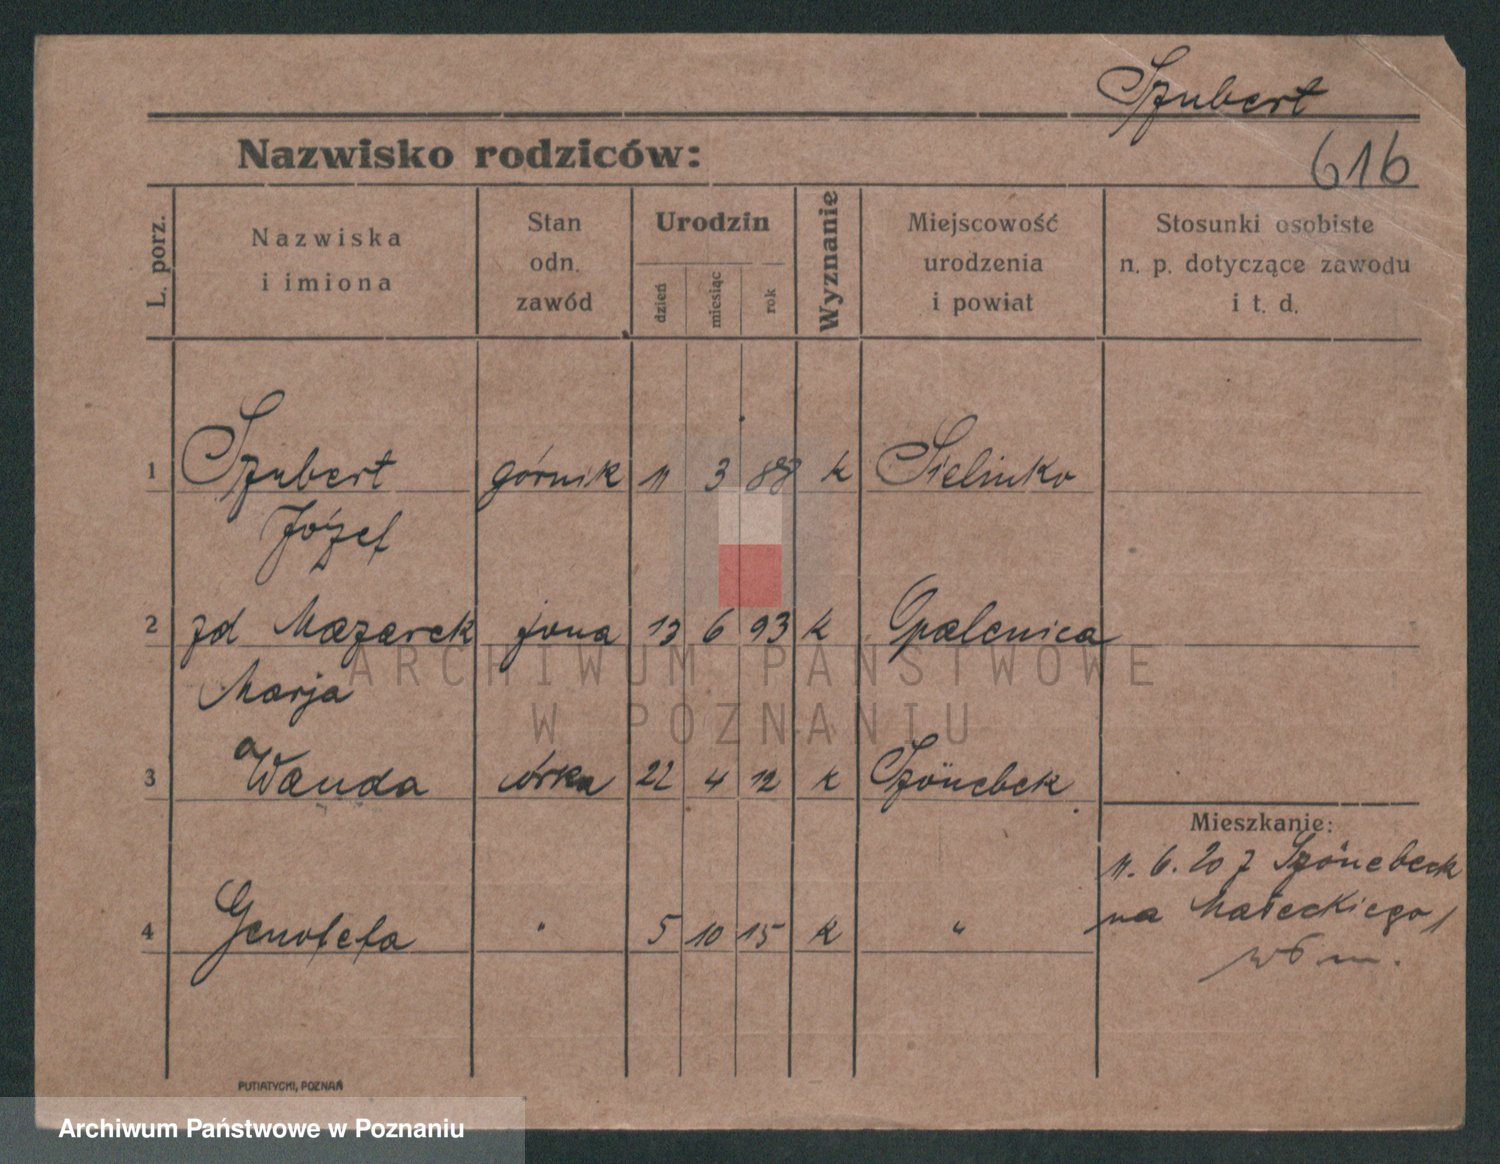 Szubert
616
Nazwisko rodziców:
L. porz.
Nazwiska
i imiona
Stan
odn.
zawód
Urodzin
dzień
miesiąc
rok
Wyznanie
Miejscowość
urodzenia
i powiat
Stosunki osobiste
n. p. dotyczące zawodu
i t. d.
1 Szubert górnik 11 3 88 k Sielinko
Józef
2 zd Mazarek żona 13 6 93 k Opalenica
Marja
3 Wanda córka 22 4 12 k Szönebek
Mieszkanie:
11. 6. 20 z Szönebeck
4 Genofefa " 5 10 15 k "
na Małeckiego
w 6 m.
PUTIATYCKI, POZNAŃ
ARCHIWUM PAŃSTWOWE
W POZNANIU
Archiwum Państwowe w Poznaniu